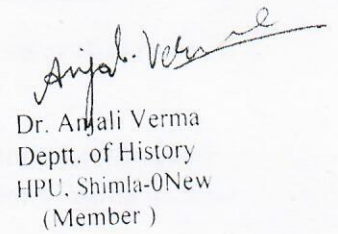 Anjali Verma
Dr. Anjali Verma
Deptt. of History
HPU, Shimla-0New
(Member )